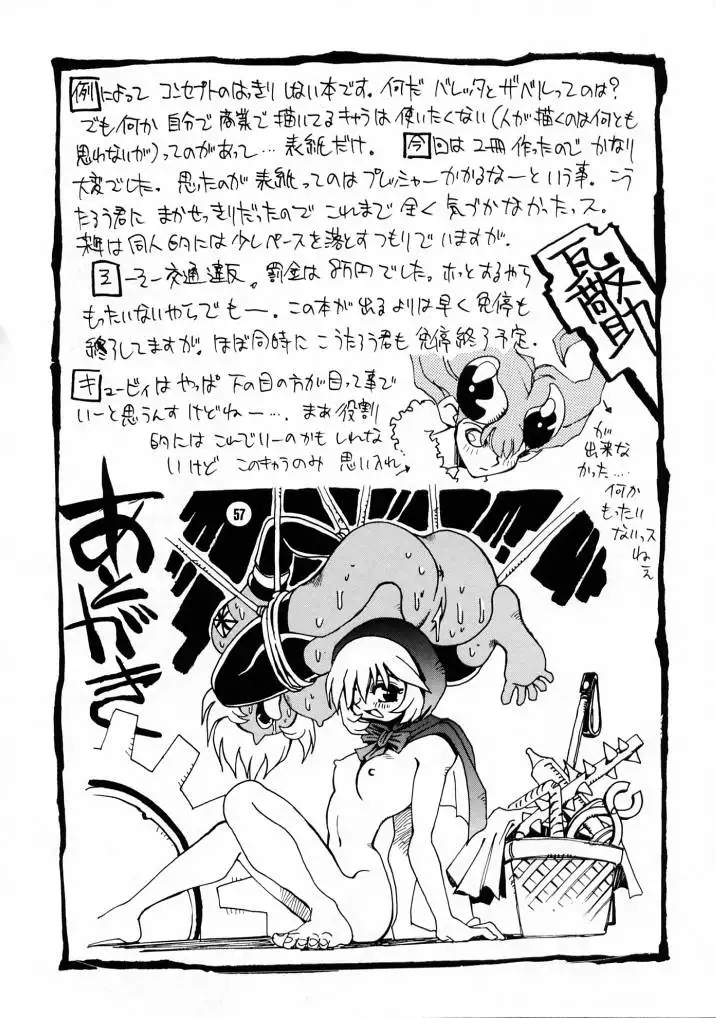 例によって コンセプトのはっきり しない本です。何だ バレッタと ザベルってのは?
でも何か 自分で 商業で 描いてるキャラは 使いたくない(人が描くのは何とも
思わないが)ってのがあって… 表紙だけ。 今回は 2冊 作ったので かなり
大変でした。思ったのが 表紙ってのは プレッシャーかかるなーという事。こう
たろう君に まかせっきりだったので これまで 全く 気づかなかったっス。
来年は 同人的には 少しペースを落とすつもりでいますが。
そー交通違反。罰金は 8万円でした。ホッとするやら
もったいないやらでもー。この本が出るよりは早く 免停も
終了してますが。ほぼ同時に こうたろう君も 免停終了予定.
キュービィは やっぱ 下の目の方が目って事で
いーと思うんす けどねー…. まあ 役割
的には これでいーのかもしれな
いけど このキャラのみ 思い入れ
が
出来な
かった….
何か
もったい
ないっス
ねぇ
瓦商助
あとがき
57